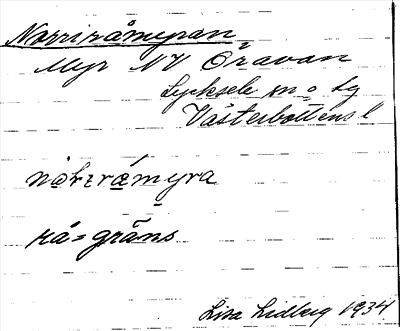 Norriråmyran
Myr NV Öravan
Lycksele sn o lg
Västerbottens l
råmyra
rå = gräns
Lisa Lidberg 1934